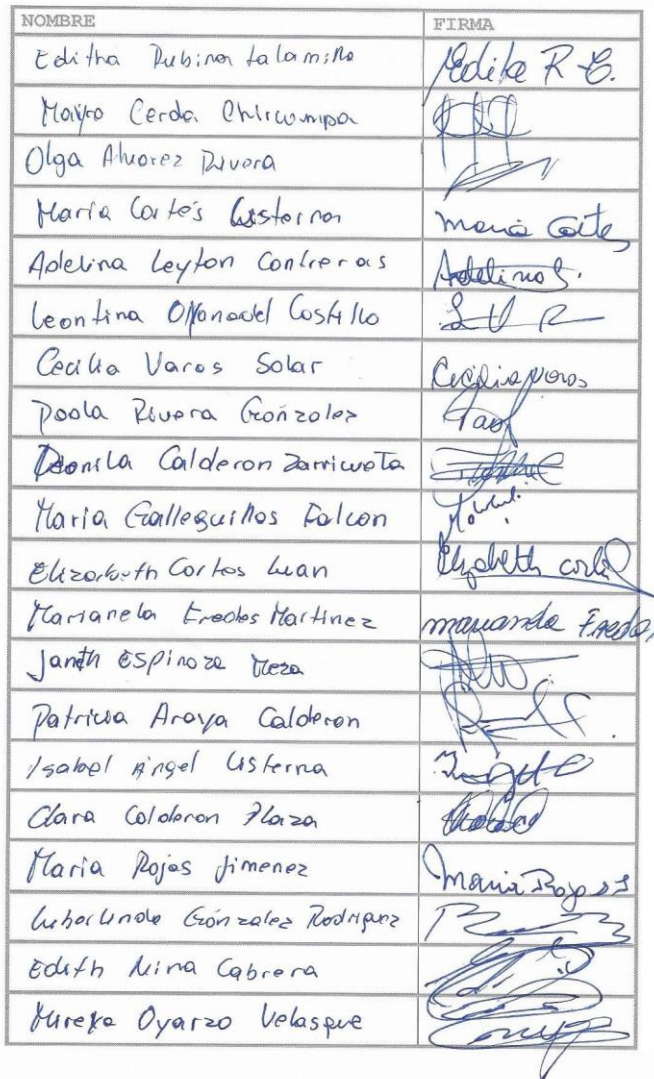 NOMBRE FIRMA
Editha Rubina Talamillo Edita R C.
Mayro Cerda Chircumpa
Olga Alvarez Rivera
Maria Cortés Cisterna Maria Cortes
Adelina Leyton Contreras Adelina L.
Leontina Castillo
Cecilia Varas Solar Cecilia Varas
Paola Rivera González Paol
Calderon Zarricueta
Maria Galleguillos Falcon
Elizabeth Cortes Luan Elizabeth Cortes
Marianela Fredes Martinez Marianela Fredes
Janeth Espinoza Meza
Patricia Araya Calderon
Isabel Angel Cisterna
Clara Calderon Plaza
Maria Rojas Jimenez Maria Rojas J
González Rodriguez
Edith Nina Cabrera
Mireya Oyarzo Velasque